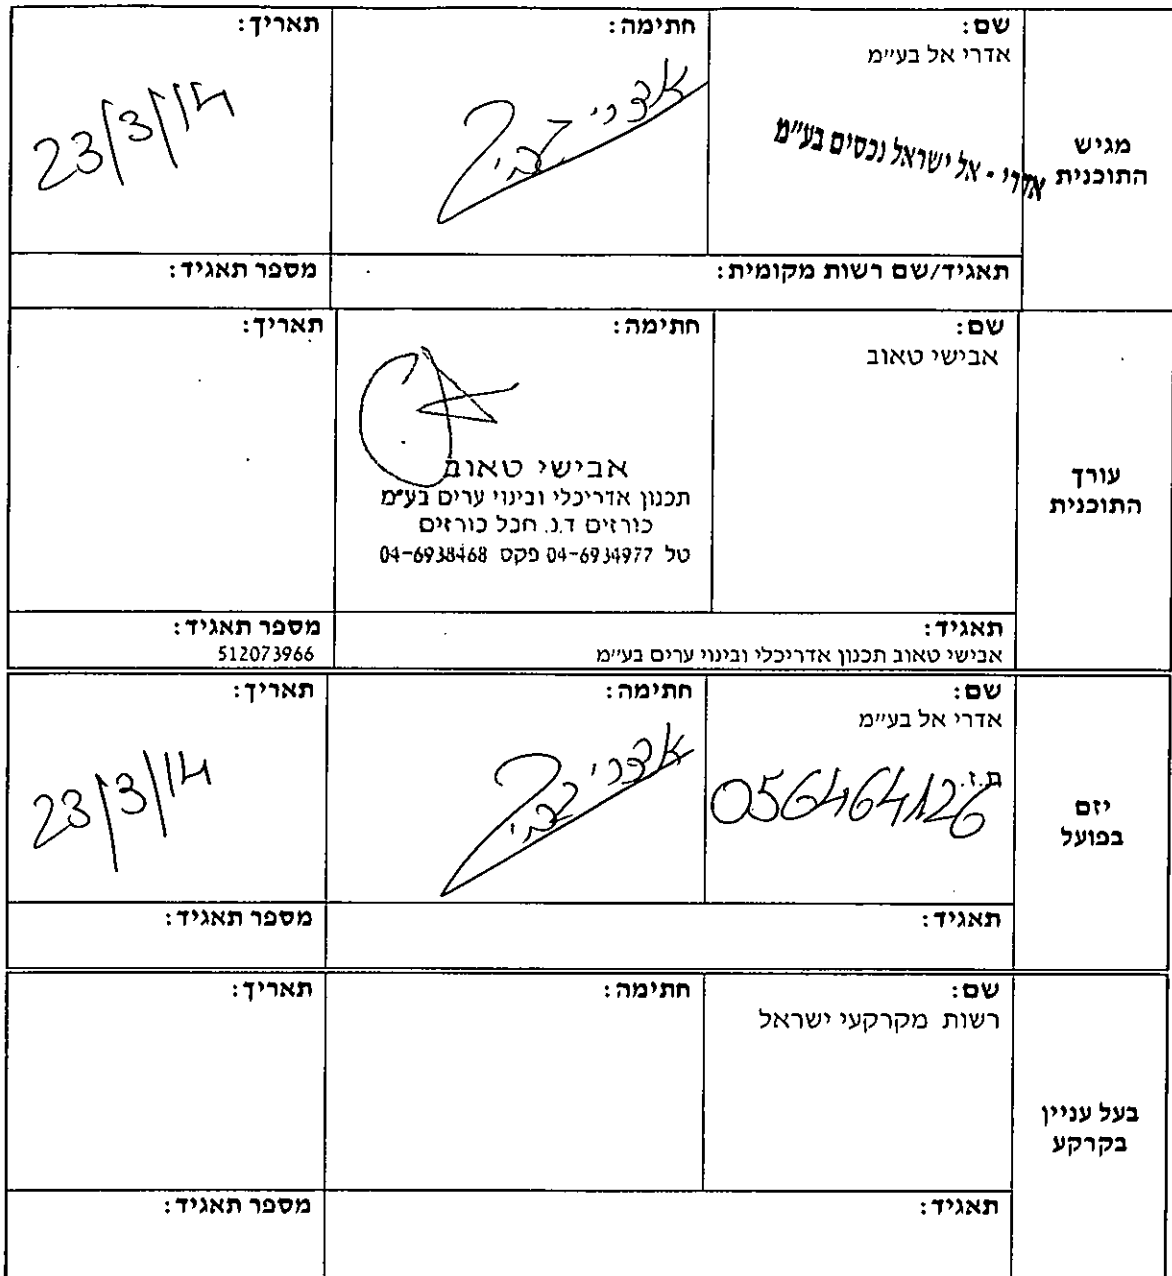 מגיש
התוכנית
שם:
אדרי אל בע"מ
אדרי - אל ישראל נכסים בע"מ
חתימה:
אדרי
תאריך:
23/3/14
תאגיד/שם רשות מקומית:
מספר תאגיד:
עורך
התוכנית
שם:
אבישי טאוב
חתימה:
אבישי טאוב
תכנון אדריכלי ובינוי ערים בע"מ
כורזים ד.נ. חבל כורזים
טל 04-6934977 פקס 04-6938468
תאריך:
תאגיד:
אבישי טאוב תכנון אדריכלי ובינוי ערים בע"מ
מספר תאגיד:
512073966
יזם
בפועל
שם:
אדרי אל בע"מ
ת.ז.
056464126
חתימה:
אדרי
תאריך:
23/3/14
תאגיד:
מספר תאגיד:
בעל עניין
בקרקע
שם:
רשות מקרקעי ישראל
חתימה:
תאריך:
תאגיד:
מספר תאגיד: